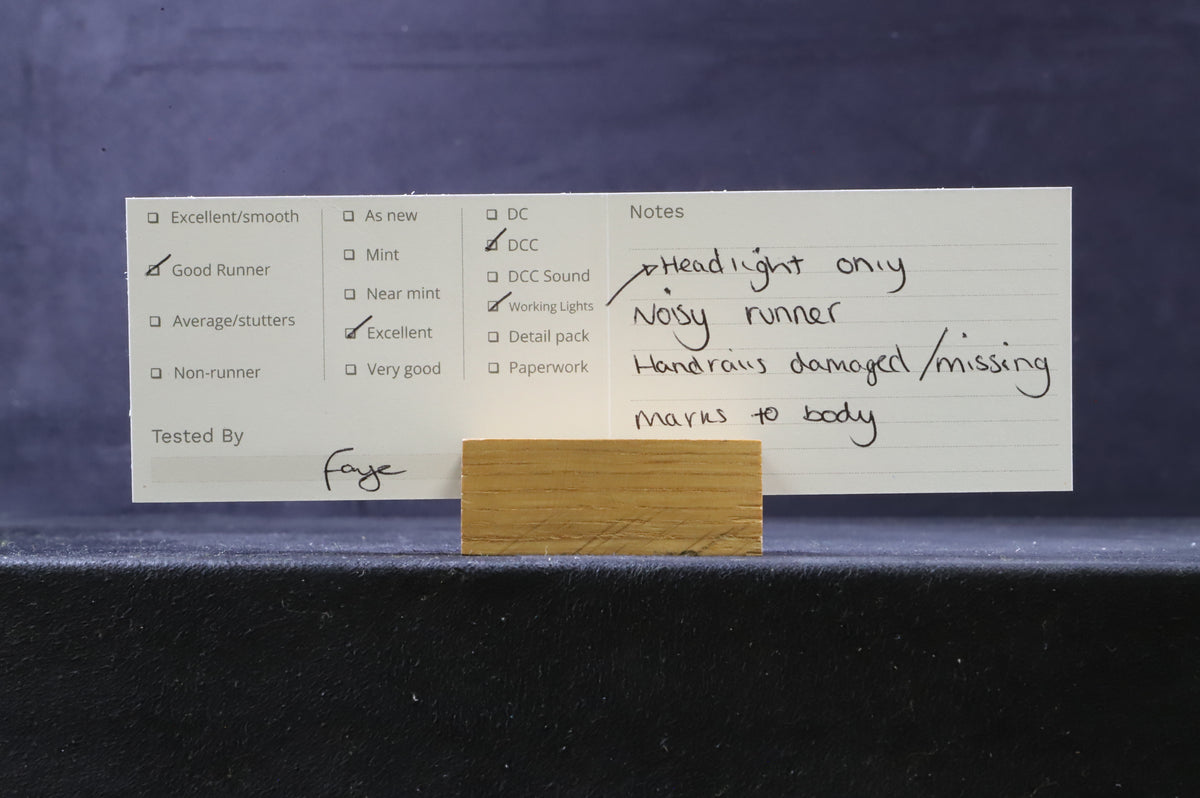 Excellent/smooth
Good Runner
Average/stutters
Non-runner
As new
Mint
Near mint
Excellent
Very good
DC
DCC
DCC Sound
Working Lights
Detail pack
Paperwork
Tested By
Faye
Notes
Headlight only
Noisy runner
Handrails damaged/missing
marks to body